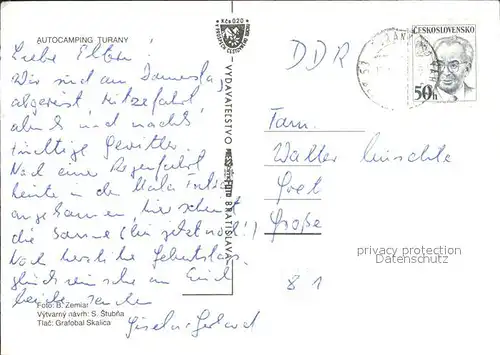 AUTOCAMPING TURANY
Liebe Eltern!
Wir sind am Donnerstag
abgereist, Hitzefahrt,
abends und nachts
kräftige Gewitter.
Nach einer Regenfahrt
heute in der Mala Fatra
angekommen, hier scheint
die Sonne (bis jetzt noch!)
Noch herzliche Geburtstags-
glückwünsche an Euch
beide senden
Foto: B. Zemiar
Výtvarný návrh: S. Štubňa
Tlač: Grafobal Skalica
Kčs 0,20
VYDAVATEĽSTVO
BRATISLAVA
DDR
ČESKOSLOVENSKO
50h
Fam.
Walter
privacy protection
Datensch.
81